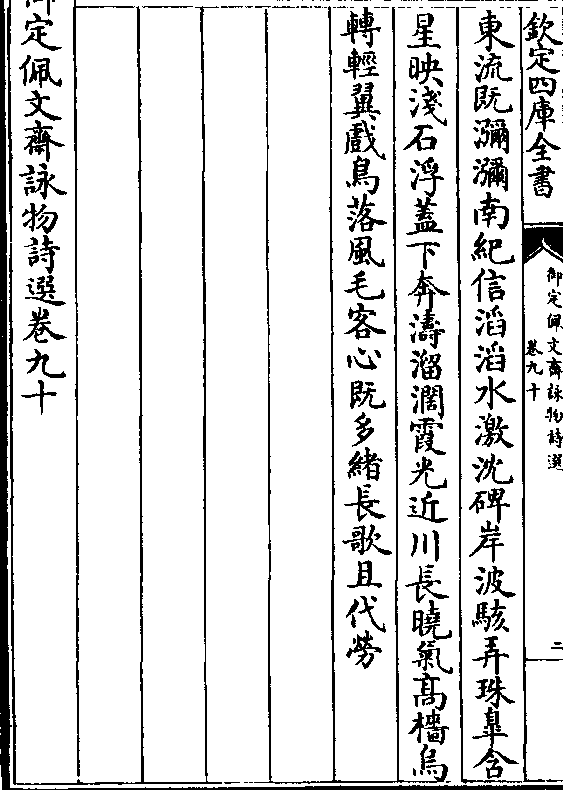 欽定四庫全書
御定佩文齋詠物詩選
卷九十
二
東流既瀰瀰南紀信滔滔水激沈碑岸波駭弄珠臯含
星映淺石浮蓋下奔濤溜濶霞光近川長曉氣髙檣烏
轉輕翼戲鳥落風毛客心既多緒長歌且代勞
御定佩文齋詠物詩選卷九十